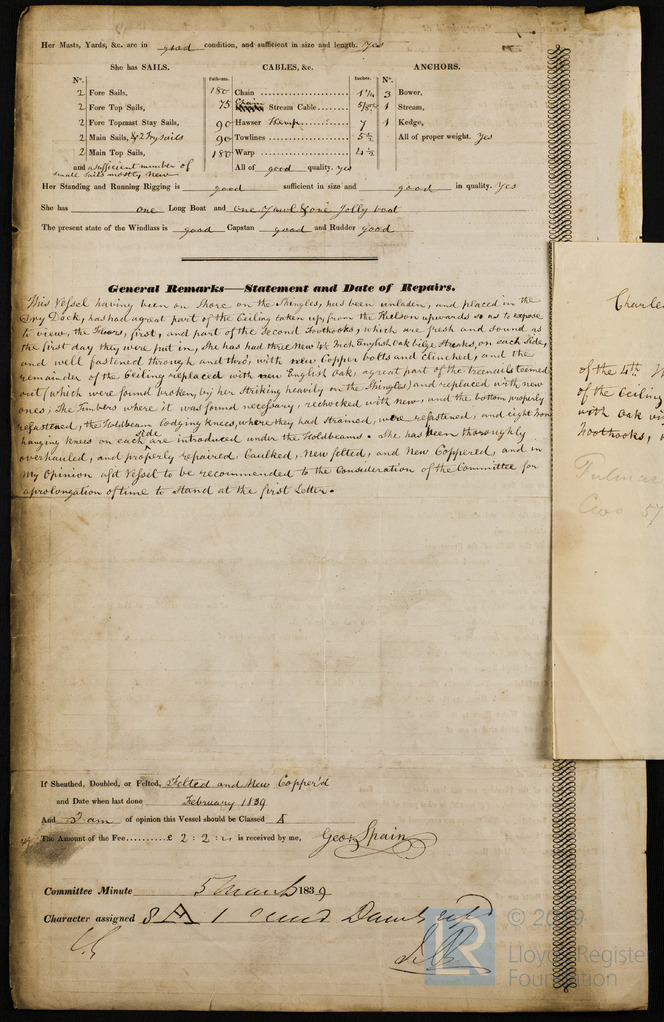 Her Masts, Yards, &c. are in good condition, and sufficient in size and length. Yes
She has SAILS.
CABLES, &c.
ANCHORS.
No.
Fathoms.
Inches.
No.
2 Fore Sails,
180 Chain 1 1/16
3 Bower,
2 Fore Top Sails,
75 Chain Stream Cable 5/8
1 Stream,
2 Fore Topmast Stay Sails,
90 Hawser Hemp 7
1 Kedge,
2 Main Sails, & 2 Trysails
90 Towlines 5½
All of proper weight. Yes
2 Main Top Sails,
180 Warp 4½
and a sufficient number of
small sails mostly new
All of good quality. yes
Her Standing and Running Rigging is good sufficient in size and good in quality. Yes
She has one Long Boat and one Yawl & one Jolly boat
The present state of the Windlass is good Capstan good and Rudder good
General Remarks—Statement and Date of Repairs.
This Vessel having been on Shore on the Shingles, has been unladen, and placed in the
Dry Dock, has had a great part of the Ceiling taken up, from the Kelson upwards so as to expose
to view, the Floors, first, and part of the Second Foothooks, which are fresh and sound as
the first day they were put in, She has had three New 4½ Inch English Oak bilge Streaks, on each Side,
and well fastened through and thro', with new Copper bolts and clinched, and the
remainder of the Ceiling replaced with new English Oak, a great part of the treenails teemed
out (which were found broken, by her Striking heavily on the Shingles) and replaced with new
ones, The Timbers where it was found necessary, rechocked with new, and the bottom properly
refastened, the Holdbeam lodging knees, where they had strained, were refastened, and eight Iron
hanging knees on each Side are introduced under the Holdbeams. She has been thoroughly
overhauled, and properly repaired, Caulked, New felted, and New Coppered, and in
my Opinion a fit Vessel to be recommended to the Consideration of the Committee for
a prolongation of time to Stand at the first Letter.
Charle
of the 4th
of the Ceiling
with Oak
Foothooks,
57
If Sheathed, Doubled, or Felted, Felted and New Copper'd
and Date when last done February 1839
And I am of opinion this Vessel should be Classed A
The Amount of the Fee £ 2 : 2 : is received by me, Geo Spain
Committee Minute 5 March 1839
Character assigned 8 A 1
© 20
LR
Lloyd's Register
Foundation